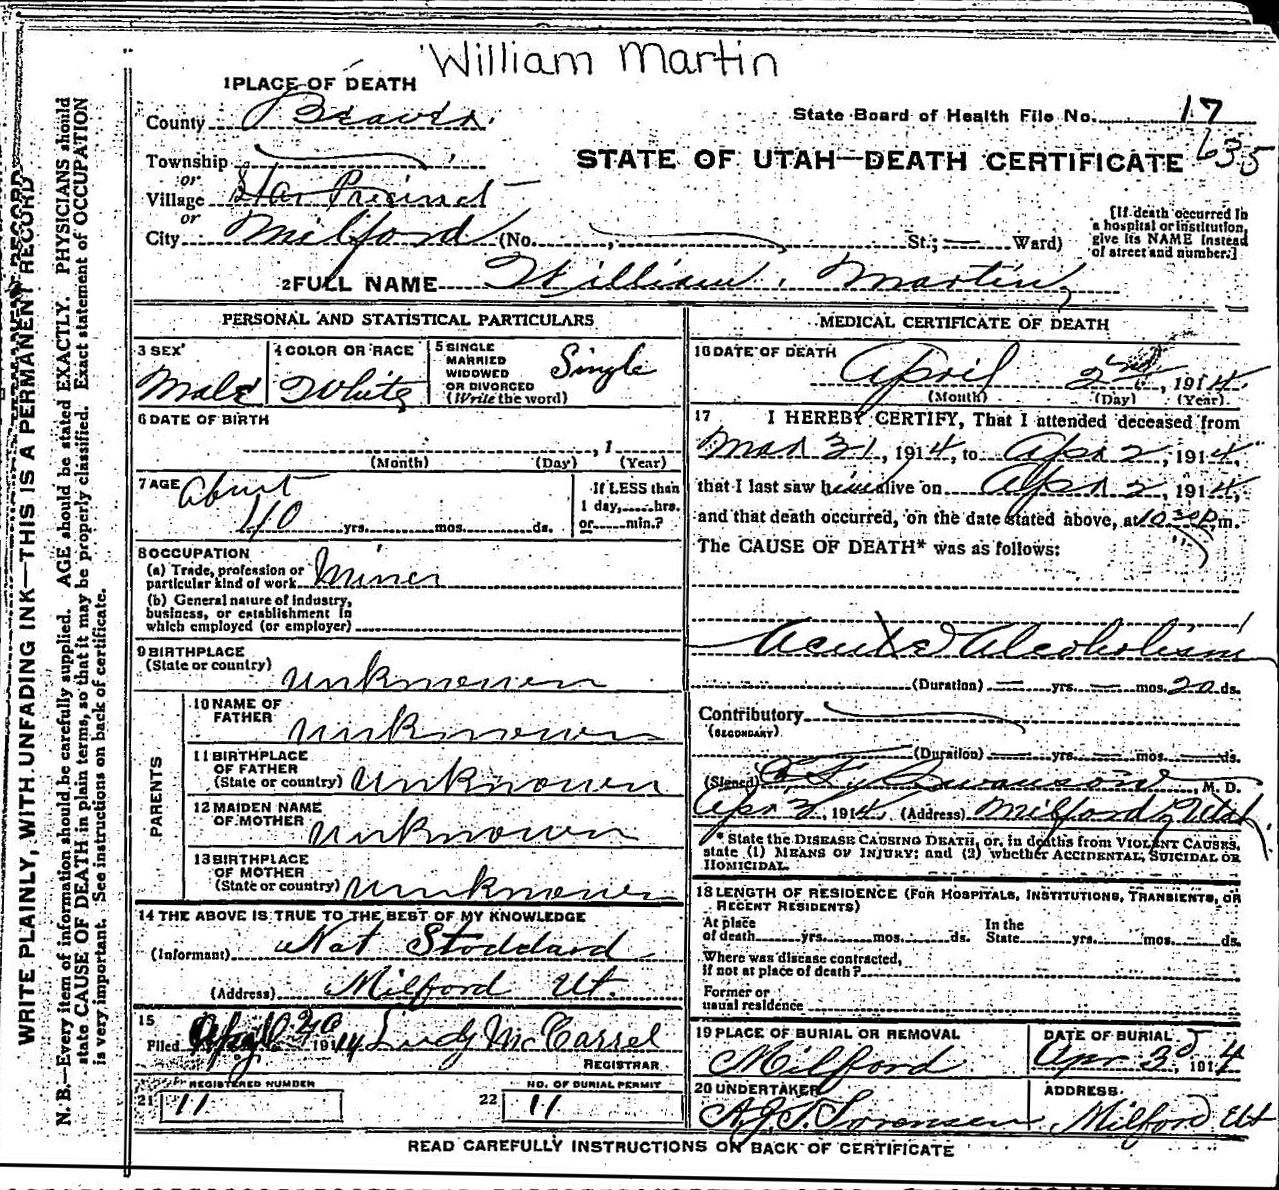 William Martin
1 PLACE OF DEATH
County Beaver
State Board of Health File No. 17
635
Township
or
Village Star Precinct
or
City Milford (No. St.; Ward)
STATE OF UTAH—DEATH CERTIFICATE
[If death occurred in
a hospital or institution,
give its NAME instead
of street and number.]
2 FULL NAME William Martin
PERSONAL AND STATISTICAL PARTICULARS
3 SEX
Male
4 COLOR OR RACE
White
5 SINGLE
MARRIED
WIDOWED
OR DIVORCED
(Write the word)
Single
6 DATE OF BIRTH
, 1
(Month) (Day) (Year)
7 AGE About
40 yrs. mos. ds.
If LESS than
1 day, hrs.
or min.?
8 OCCUPATION
(a) Trade, profession or
particular kind of work Miner
(b) General nature of industry,
business, or establishment in
which employed (or employer)
9 BIRTHPLACE
(State or country) unknown
PARENTS
10 NAME OF
FATHER unknown
11 BIRTHPLACE
OF FATHER
(State or country) unknown
12 MAIDEN NAME
OF MOTHER unknown
13 BIRTHPLACE
OF MOTHER
(State or country) unknown
14 THE ABOVE IS TRUE TO THE BEST OF MY KNOWLEDGE
(Informant) Nat Stoddard
(Address) Milford Ut.
15
Filed 1914 Lindy McCarrel
REGISTRAR
REGISTERED NUMBER
21 11
NO. OF BURIAL PERMIT
22 11
MEDICAL CERTIFICATE OF DEATH
16 DATE OF DEATH
April 2nd, 1914
(Month) (Day) (Year)
17 I HEREBY CERTIFY, That I attended deceased from
Mar 31, 1914, to Apr 2, 1914,
that I last saw him alive on Apr 2, 1914,
and that death occurred, on the date stated above, at 10 30 P.m.
The CAUSE OF DEATH* was as follows:
Acute Alcoholism
(Duration) — yrs. — mos. 20 ds.
Contributory
(SECONDARY)
(Duration) — yrs. — mos. — ds.
(Signed) Swanson, M. D.
Apr 3, 1914, (Address) Milford, Utah.
* State the DISEASE CAUSING DEATH, or, in deaths from VIOLENT CAUSES,
state (1) MEANS OF INJURY; and (2) whether ACCIDENTAL, SUICIDAL OR
HOMICIDAL.
18 LENGTH OF RESIDENCE (FOR HOSPITALS, INSTITUTIONS, TRANSIENTS, OR
RECENT RESIDENTS)
At place
of death yrs. mos. ds.
In the
State yrs. mos. ds.
Where was disease contracted,
if not at place of death?
Former or
usual residence
19 PLACE OF BURIAL OR REMOVAL
Milford
DATE OF BURIAL
Apr 3d, 1914
20 UNDERTAKER
A.J.T. Sorensen
ADDRESS
Milford Ut
READ CAREFULLY INSTRUCTIONS ON BACK OF CERTIFICATE
WRITE PLAINLY, WITH UNFADING INK—THIS IS A PERMANENT RECORD
N. B.—Every item of information should be carefully supplied. AGE should be stated EXACTLY. PHYSICIANS should
state CAUSE OF DEATH in plain terms, so that it may be properly classified. Exact statement of OCCUPATION
is very important. See instructions on back of certificate.